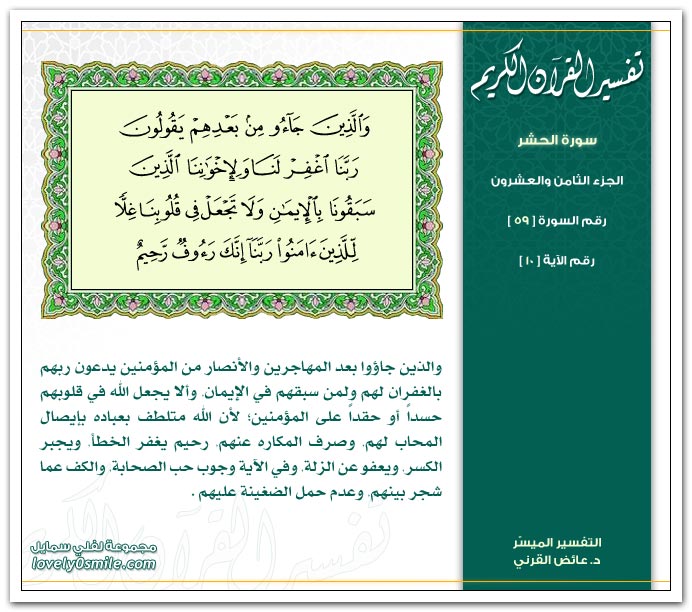 تفسير القرآن الكريم
سورة الحشر
الجزء الثامن والعشرون
رقم السورة [ ٥٩ ]
رقم الآية [ ١٠ ]
وَٱلَّذِينَ جَآءُو مِنۢ بَعْدِهِمْ يَقُولُونَ
رَبَّنَا ٱغْفِرْ لَنَا وَلِإِخْوَٰنِنَا ٱلَّذِينَ
سَبَقُونَا بِٱلْإِيمَٰنِ وَلَا تَجْعَلْ فِى قُلُوبِنَا غِلًّا
لِّلَّذِينَ ءَامَنُوا۟ رَبَّنَآ إِنَّكَ رَءُوفٌ رَّحِيمٌ
والذين جاؤوا بعد المهاجرين والأنصار من المؤمنين يدعون ربهم
بالغفران لهم ولمن سبقهم في الإيمان، وألا يجعل الله في قلوبهم
حسداً أو حقداً على المؤمنين؛ لأن الله متلطف بعباده بإيصال
المحاب لهم، وصرف المكاره عنهم، رحيم يغفر الخطأ، ويجبر
الكسر، ويعفو عن الزلة، وفي الآية وجوب حب الصحابة، والكف عما
شجر بينهم، وعدم حمل الضغينة عليهم .
التفسير الميسّر
د. عائض القرني
مجموعة لفلي سمايل
lovely0smile.com
تفسير القرآن الكريم